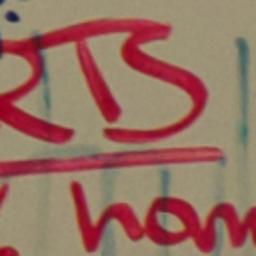 RTS
hom